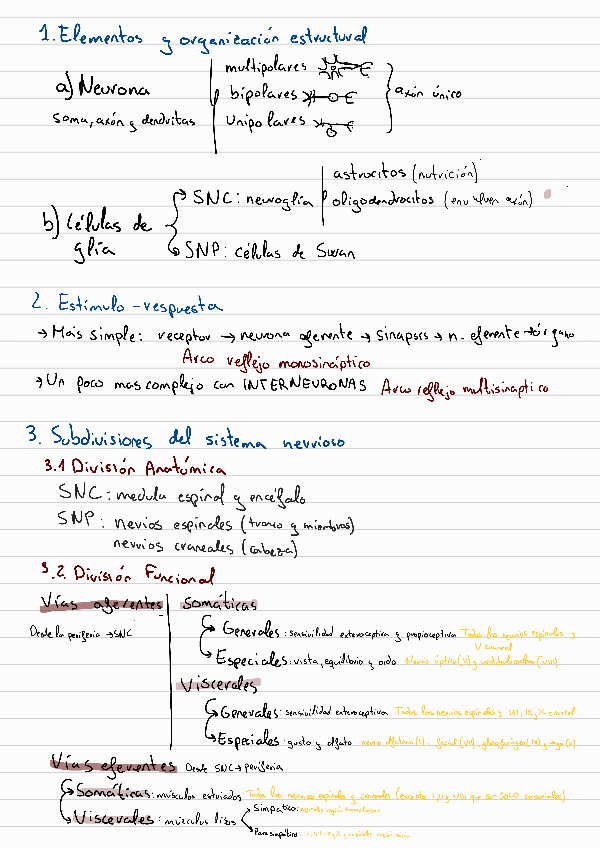 1. Elementos y organización estructural
a) Neurona
soma, axón y dendritas
multipolares
bipolares
unipolares
axón único
b) Células de glía
SNC: neuroglía
astrocitos (nutrición)
oligodendrocitos (envuelven axón)
SNP: células de Swan
2. Estímulo - respuesta
→ Más simple: receptor → neurona aferente → sinapsis → n. eferente → órgano
Arco reflejo monosináptico
→ Un poco mas complejo con INTERNEURONAS Arco reflejo multisinaptico
3. Subdivisiones del sistema nervioso
3.1 División Anatómica
SNC: medula espinal y encéfalo
SNP: nevios espinales (tronco y miembros)
nevvios craneales (cabeza)
3.2. División Funcional
Vías aferentes
Desde la periferia → SNC
Somáticas
Generales: sensivilidad exteroceptiva y propioceptiva Todos los nervios espinales y V craneal
Especiales: vista, equilibrio y oido Nervio óptico (II) y vestibulococlear (VIII)
Viscerales
Generales: sensivilidad enteroceptiva Todos los nervios espinales y VII, IX y X craneal
Especiales: gusto y olfato nervio olfatorio (I), facial (VII), glosofaríngeo (IX) y vago (X)
Vías eferentes Desde SNC → periferia
Somáticas: músculos estriados Todos los nervios espinales y craneales (excepto I, II y VIII que son SOLO sensoriales)
Viscerales: músculos lisos
Simpático:
Parasimpático: